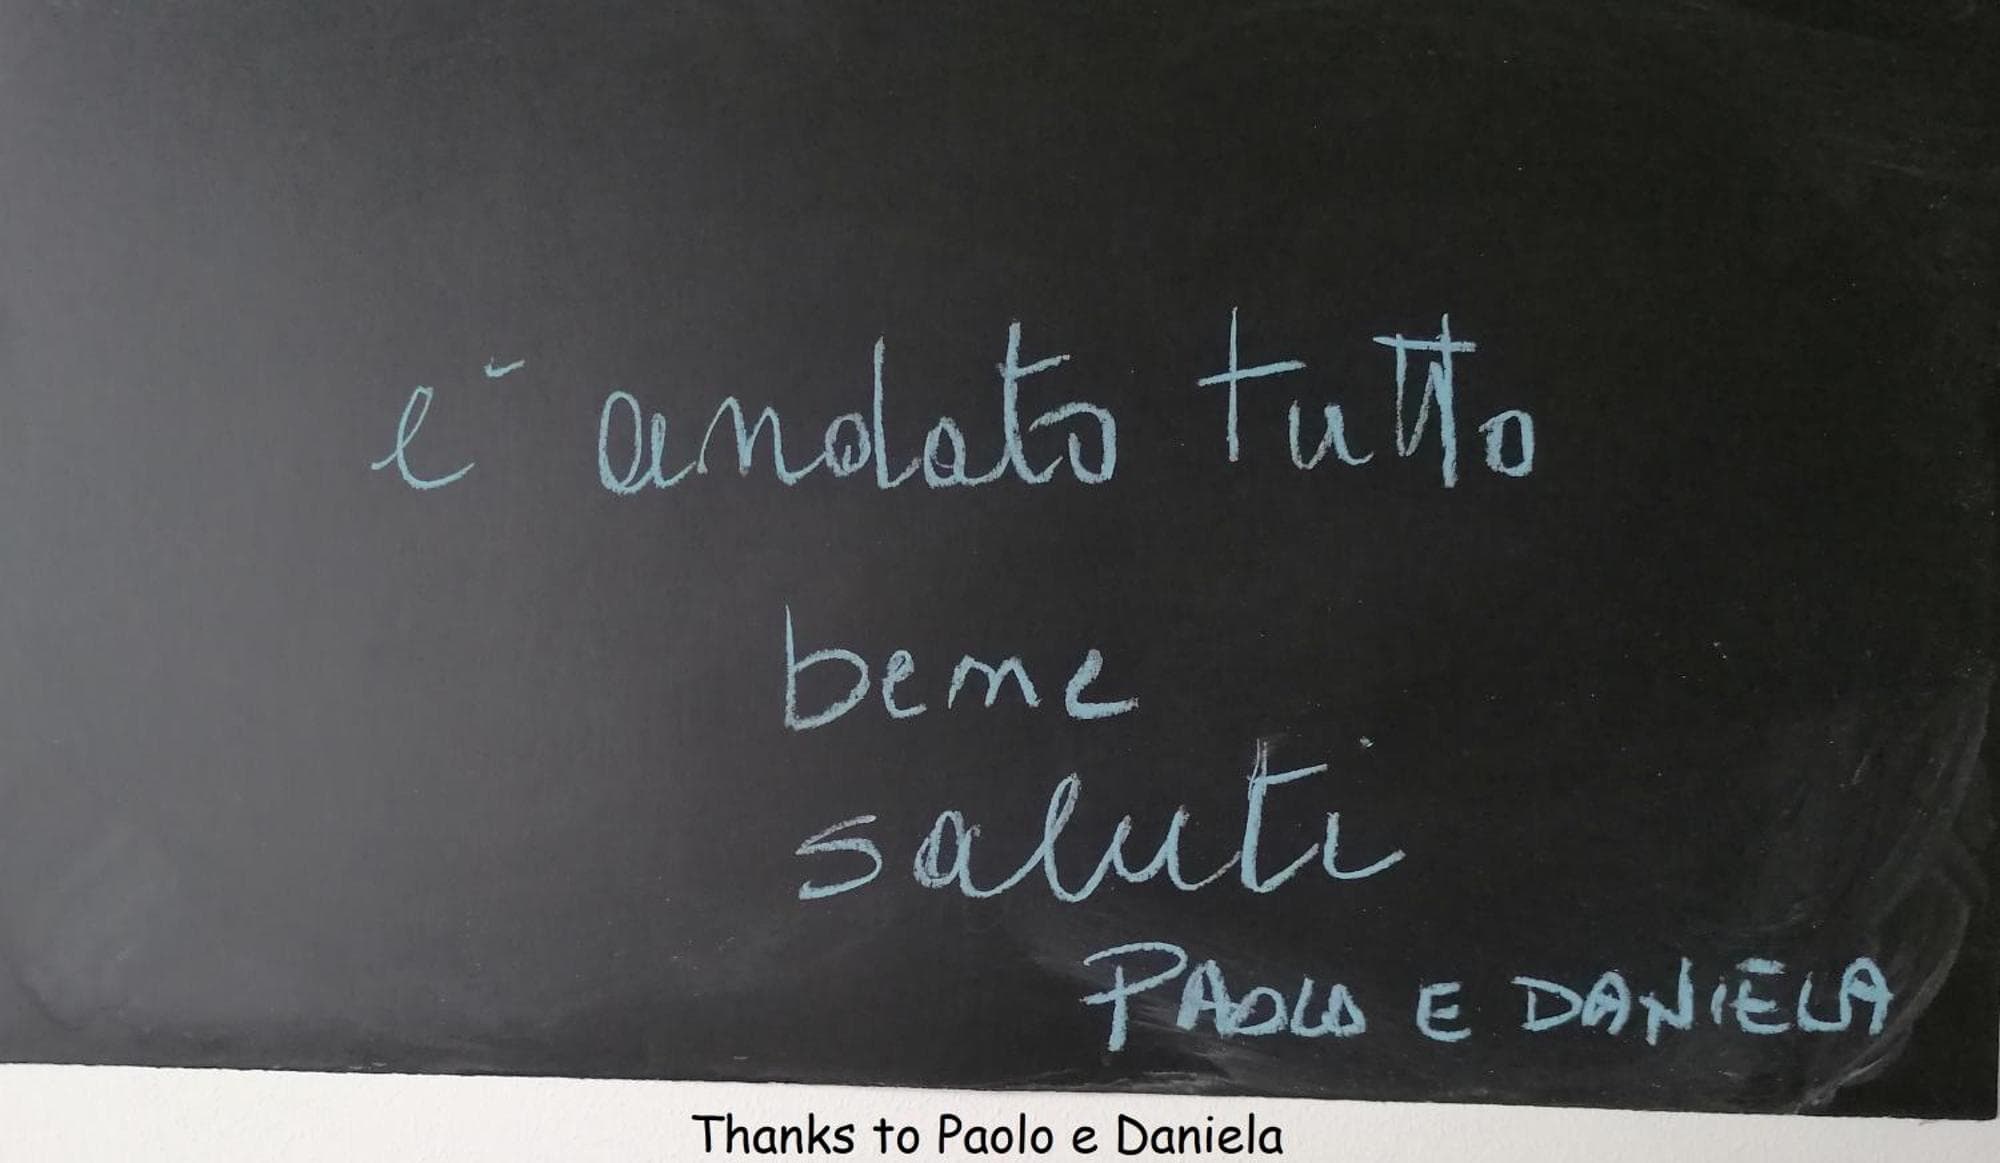 è andato tutto
bene
saluti
PAOLO E DANIELA
Thanks to Paolo e Daniela